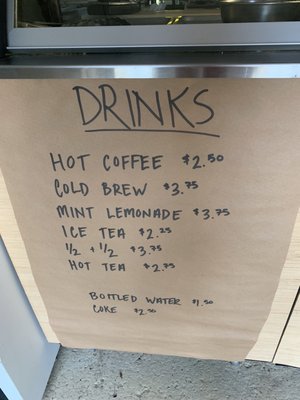 DRINKS
HOT COFFEE $2.50
COLD BREW $3.75
MINT LEMONADE $3.75
ICE TEA $2.25
1/2 + 1/2 $3.75
HOT TEA $2.75
BOTTLED WATER $1.50
COKE $2.50